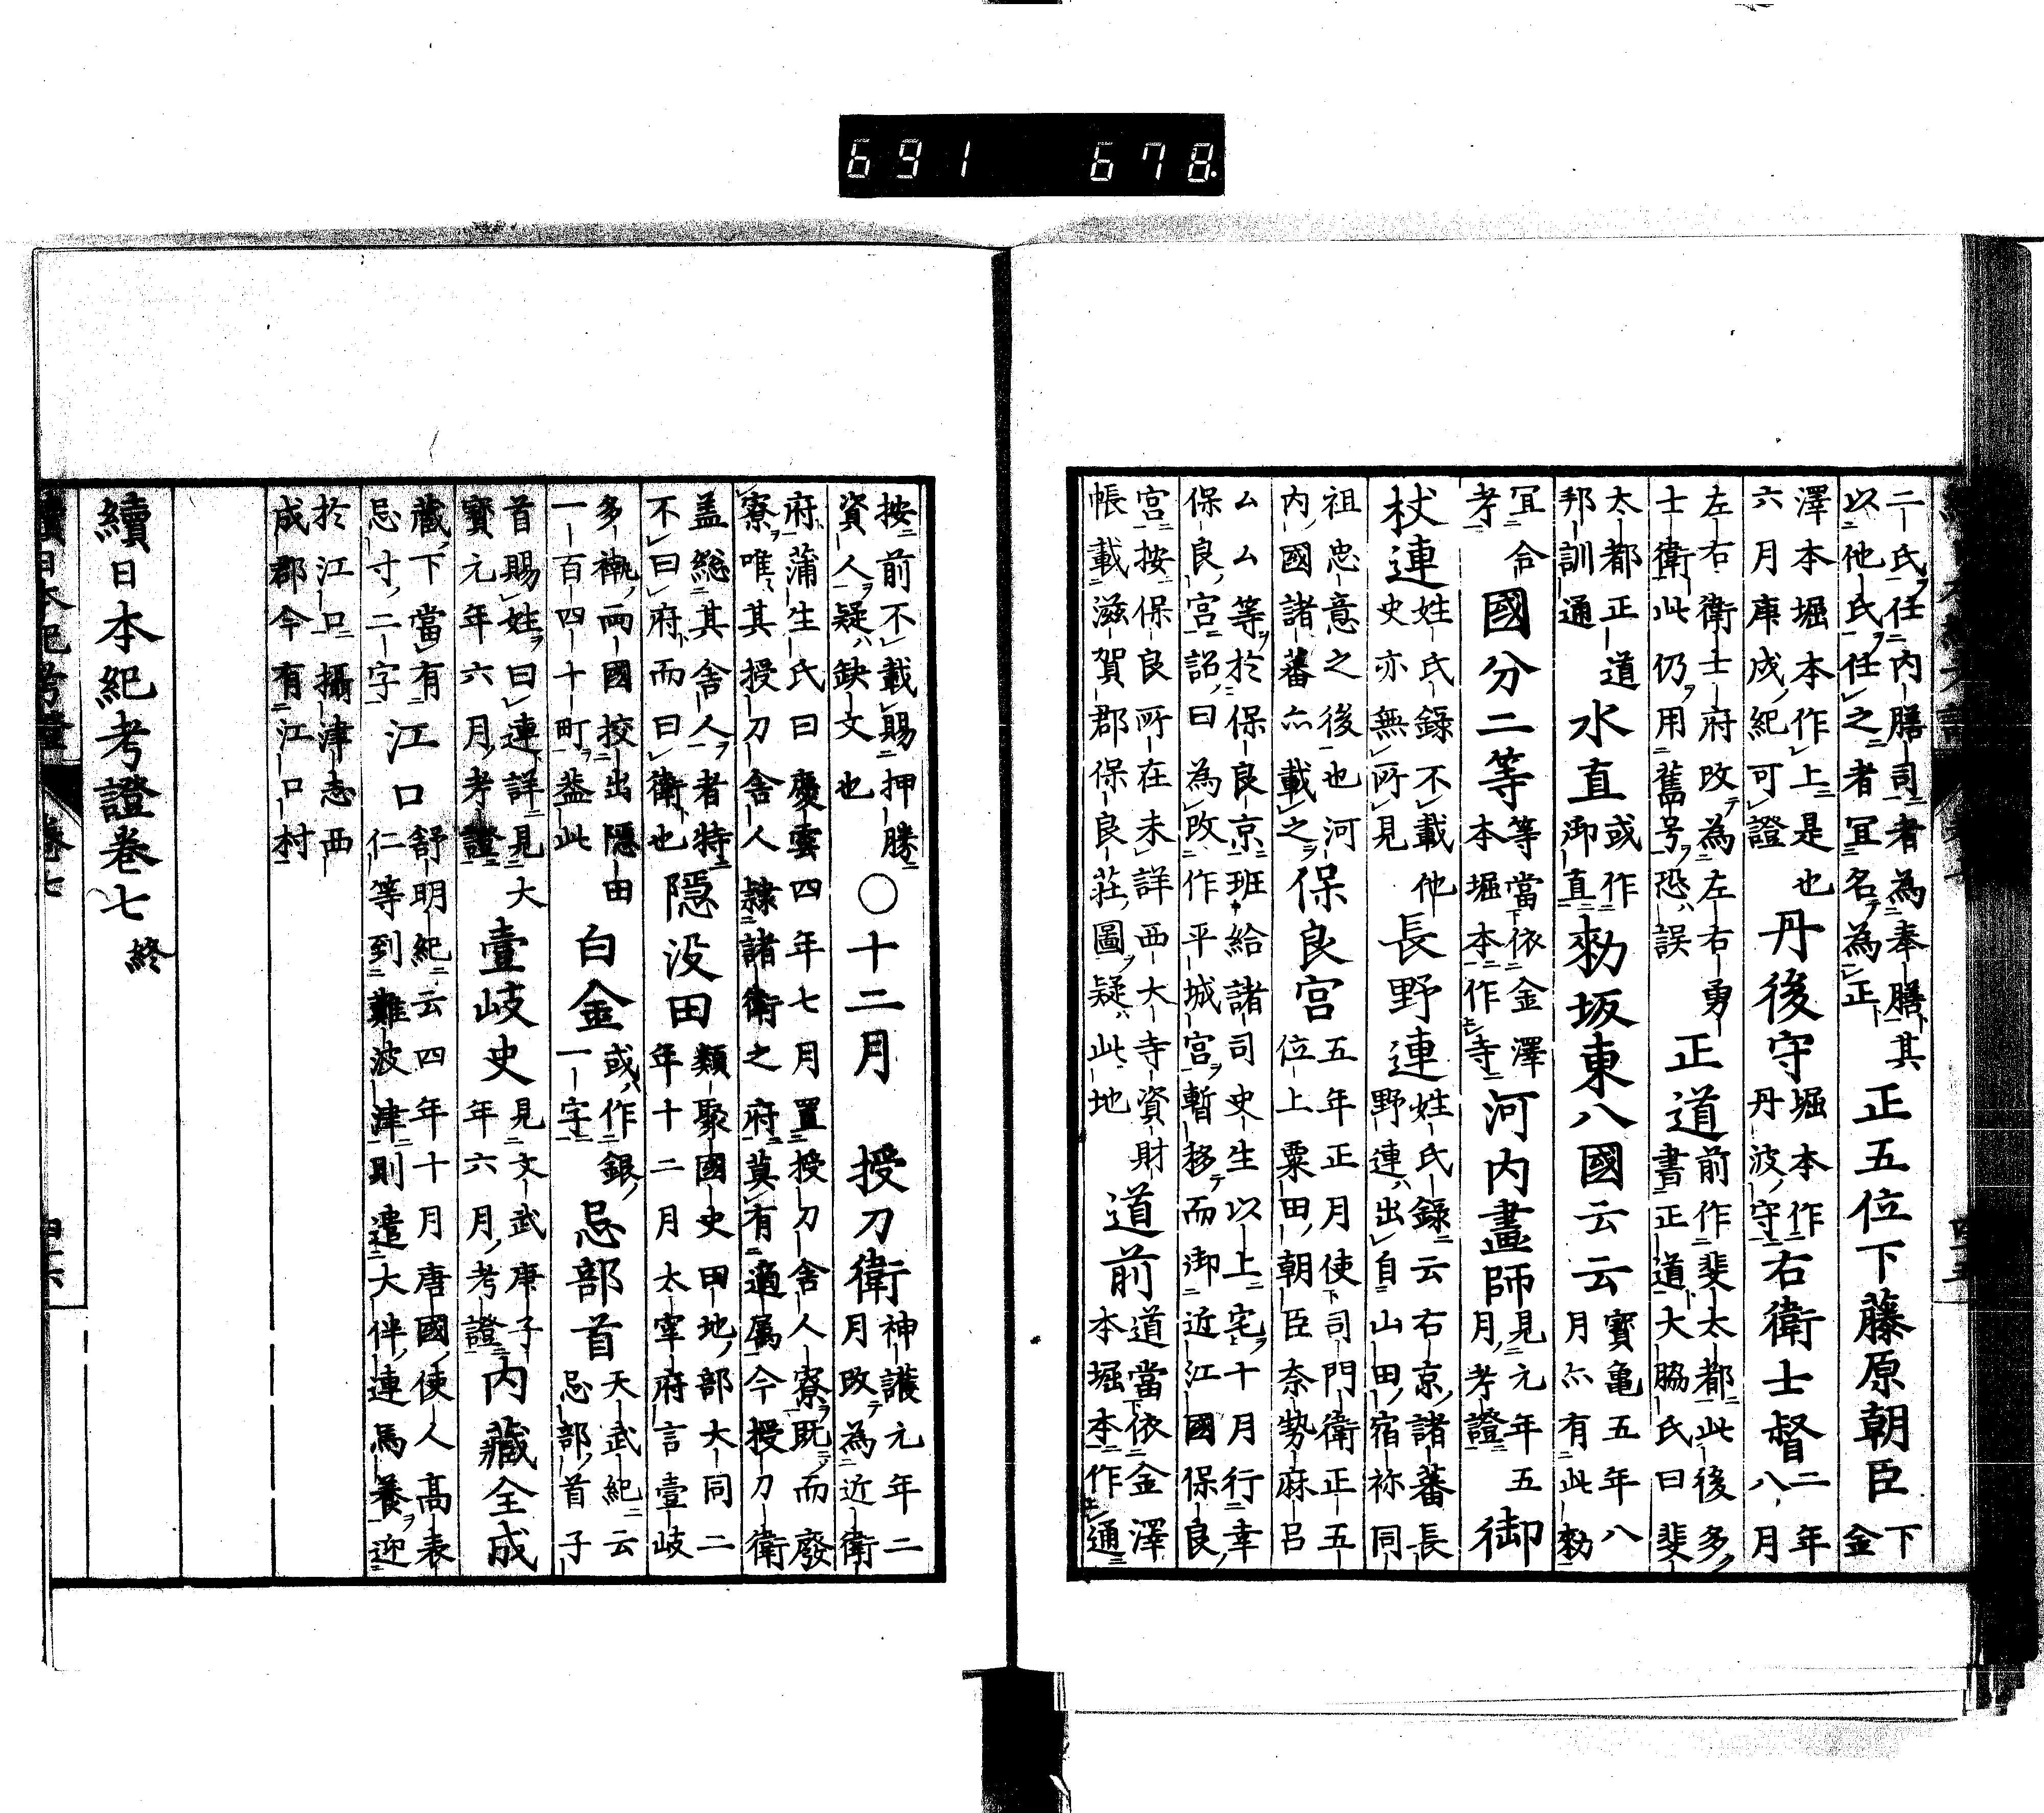 691 678.
二氏任内膳司者為奉膳其
以他氏任之者冝名為正
正五位下藤原朝臣
下
金
澤本堀本作上是也
六月庚戌紀可證
丹後守
堀本作
丹波守
右衛士督
二年
八月
左右衛士府改為左右勇
士衛此仍用舊号恐誤
正道
前作斐太都此後多
書正道大脇氏曰斐
太都正道
邦訓通
水直
或作
御直
勑坂東八國云云
寳亀五年八
月亦有此勑
冝合
考
國分二等
等當依金澤
本堀本作寺
河内畫師
見元年五
月考證
御
杖連
姓氏録不載他
史亦無所見
長野連
姓氏録云右京諸蕃長
野連出自山田宿祢同
祖忠意之後也河
内國諸蕃亦載之
保良宮
五年正月使司門衛正五
位上粟田朝臣奈勢麻呂
ムム等於保良京班給諸司史生以上宅十月行幸
保良宮詔曰為改作平城宮暫移而御近江國保良
宮按保良所在未詳西大寺資財
帳載滋賀郡保良莊圖疑此地
道前
道當依金澤
本堀本作通
按前不載賜押勝
資人疑缺文也
○十二月
授刀衛
神護元年二
月改為近衛
府蒲生氏曰慶雲四年七月置授刀舎人寮既而廢
寮唯其授刀舎人隷諸衛之府莫有適属今授刀衛
盖総其舎人者特
不曰府而曰衛也
隠没田
類聚國史田地部大同二
年十二月太宰府言壹岐
多褹兩國挍出隠田
一百四十町葢此
白金
或作銀
一字
忌部首
天武紀云
忌部首子
首賜姓曰連詳見大
寳元年六月考證
壹岐史
見文武庚子
年六月考證
内藏全成
藏下當有
忌寸二字
江口
舒明紀云四年十月唐國使人高表
仁等到難波津則遣大伴連馬養迎
於江口攝津志西
成郡今有江口村
續日本紀考證卷七終
續日本紀考證 卷七 四十六